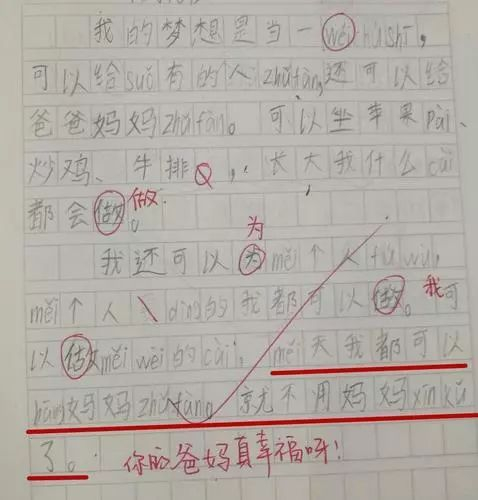 我的梦想是当一wéi chú shī,
可以给suǒ有的人zhǔ fàn,还可以给
爸爸妈妈zhǔ fàn。可以坐苹果pài、
炒鸡、牛排,长大我什么cài
都会做。做
为
我还可以为měi个人fú wù,
měi个人diǎn的我都可以做。我可
以做měi wèi的cài,měi天我都可以
bāng妈妈zhǔ fàn。就不用妈妈xīn kǔ
了。你的爸妈真幸福呀!